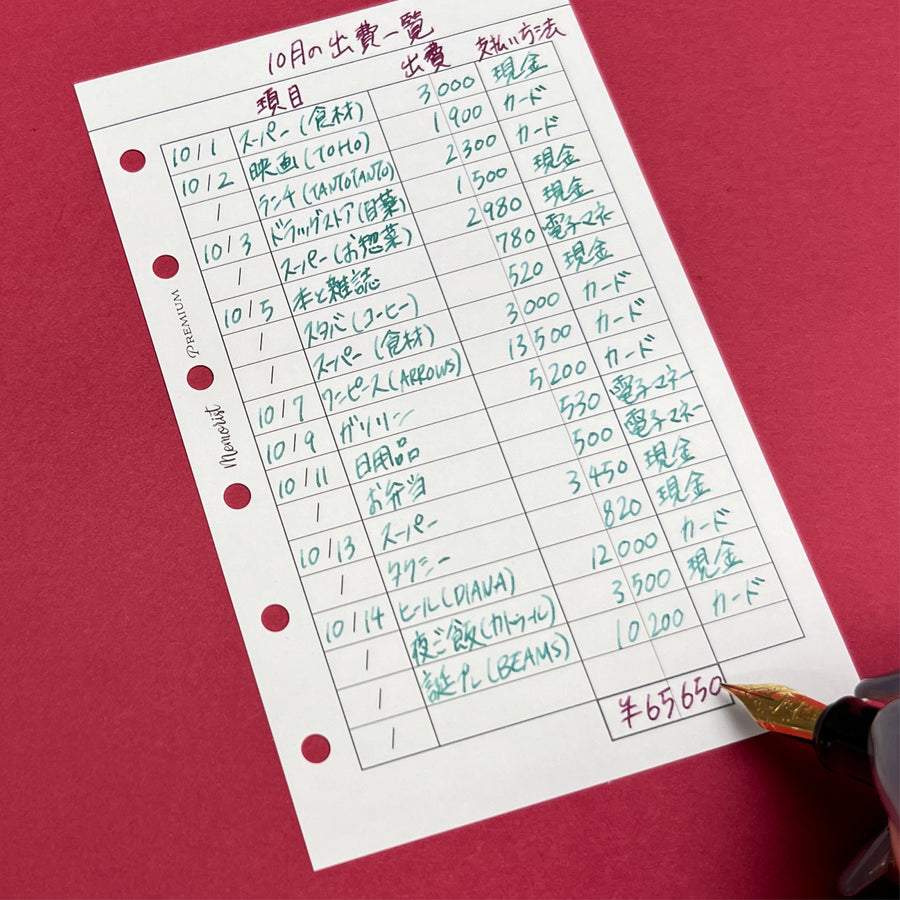 10月の出費一覧
項目 出費 支払い方法
10/1 スーパー(食材) 3000 現金
10/2 映画(TOHO) 1900 カード
/ ランチ(TANTOTANTO) 2300 カード
10/3 ドラッグストア(目薬) 1500 現金
/ スーパー(お惣菜) 2980 現金
10/5 本と雑誌 780 電子マネー
/ スタバ(コーヒー) 520 現金
/ スーパー(食材) 3000 カード
10/7 ワンピース(ARROWS) 13500 カード
10/9 ガソリン 5200 カード
10/11 日用品 530 電子マネー
/ お弁当 500 電子マネー
10/13 スーパー 3450 現金
/ タクシー 820 現金
10/14 ヒール(DIANA) 12000 カード
/ 夜ご飯(カトラール) 3500 現金
/ 誕プレ(BEAMS) 10200 カード
/
¥65650
PREMIUM
Memorist